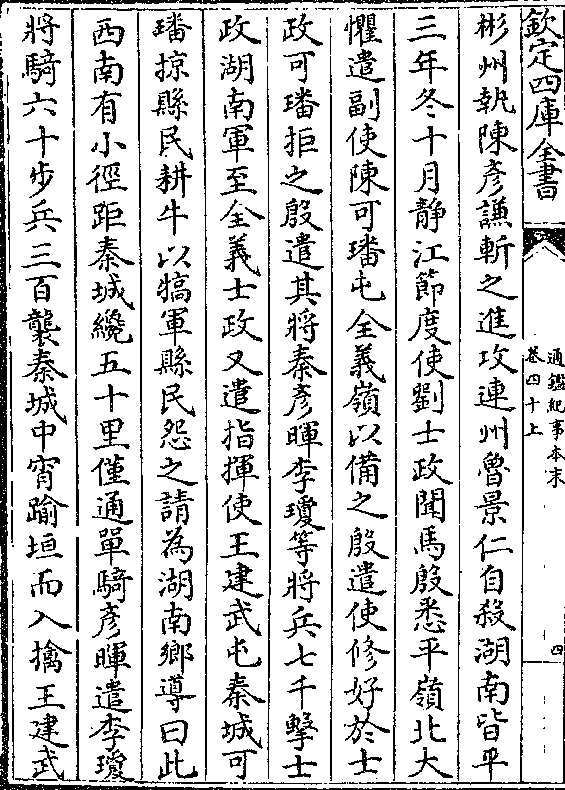 欽定四庫全書
通鑑紀事本末
卷四十上
四
彬州執陳彥謙斬之進攻連州魯景仁自殺湖南皆平
三年冬十月静江節度使劉士政聞馬殷悉平嶺北大
懼遣副使陳可璠屯全義嶺以備之殷遣使修好於士
政可璠拒之殷遣其將秦彥暉李瓊等將兵七千擊士
政湖南軍至全義士政又遣指揮使王建武屯秦城可
璠掠縣民耕牛以犒軍縣民怨之請為湖南鄉導曰此
西南有小徑距秦城纔五十里僅通單騎彥暉遣李瓊
將騎六十步兵三百襲秦城中宵踰垣而入擒王建武